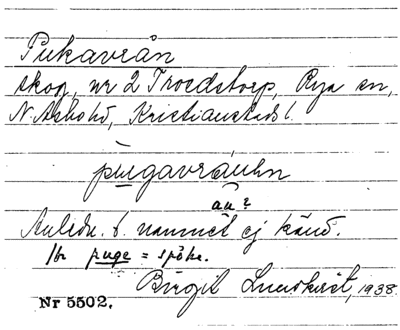 Pukavrån
skog, nr 2 Troedstorp, Rya sn,
N. Åsbo hd, Kristianstads l.
pu̲gavráuhn
au?
Anledn. t. namnet ej känd.
puge = spöke.
Birgit Lundkvist, 1938.
Nr 5502.